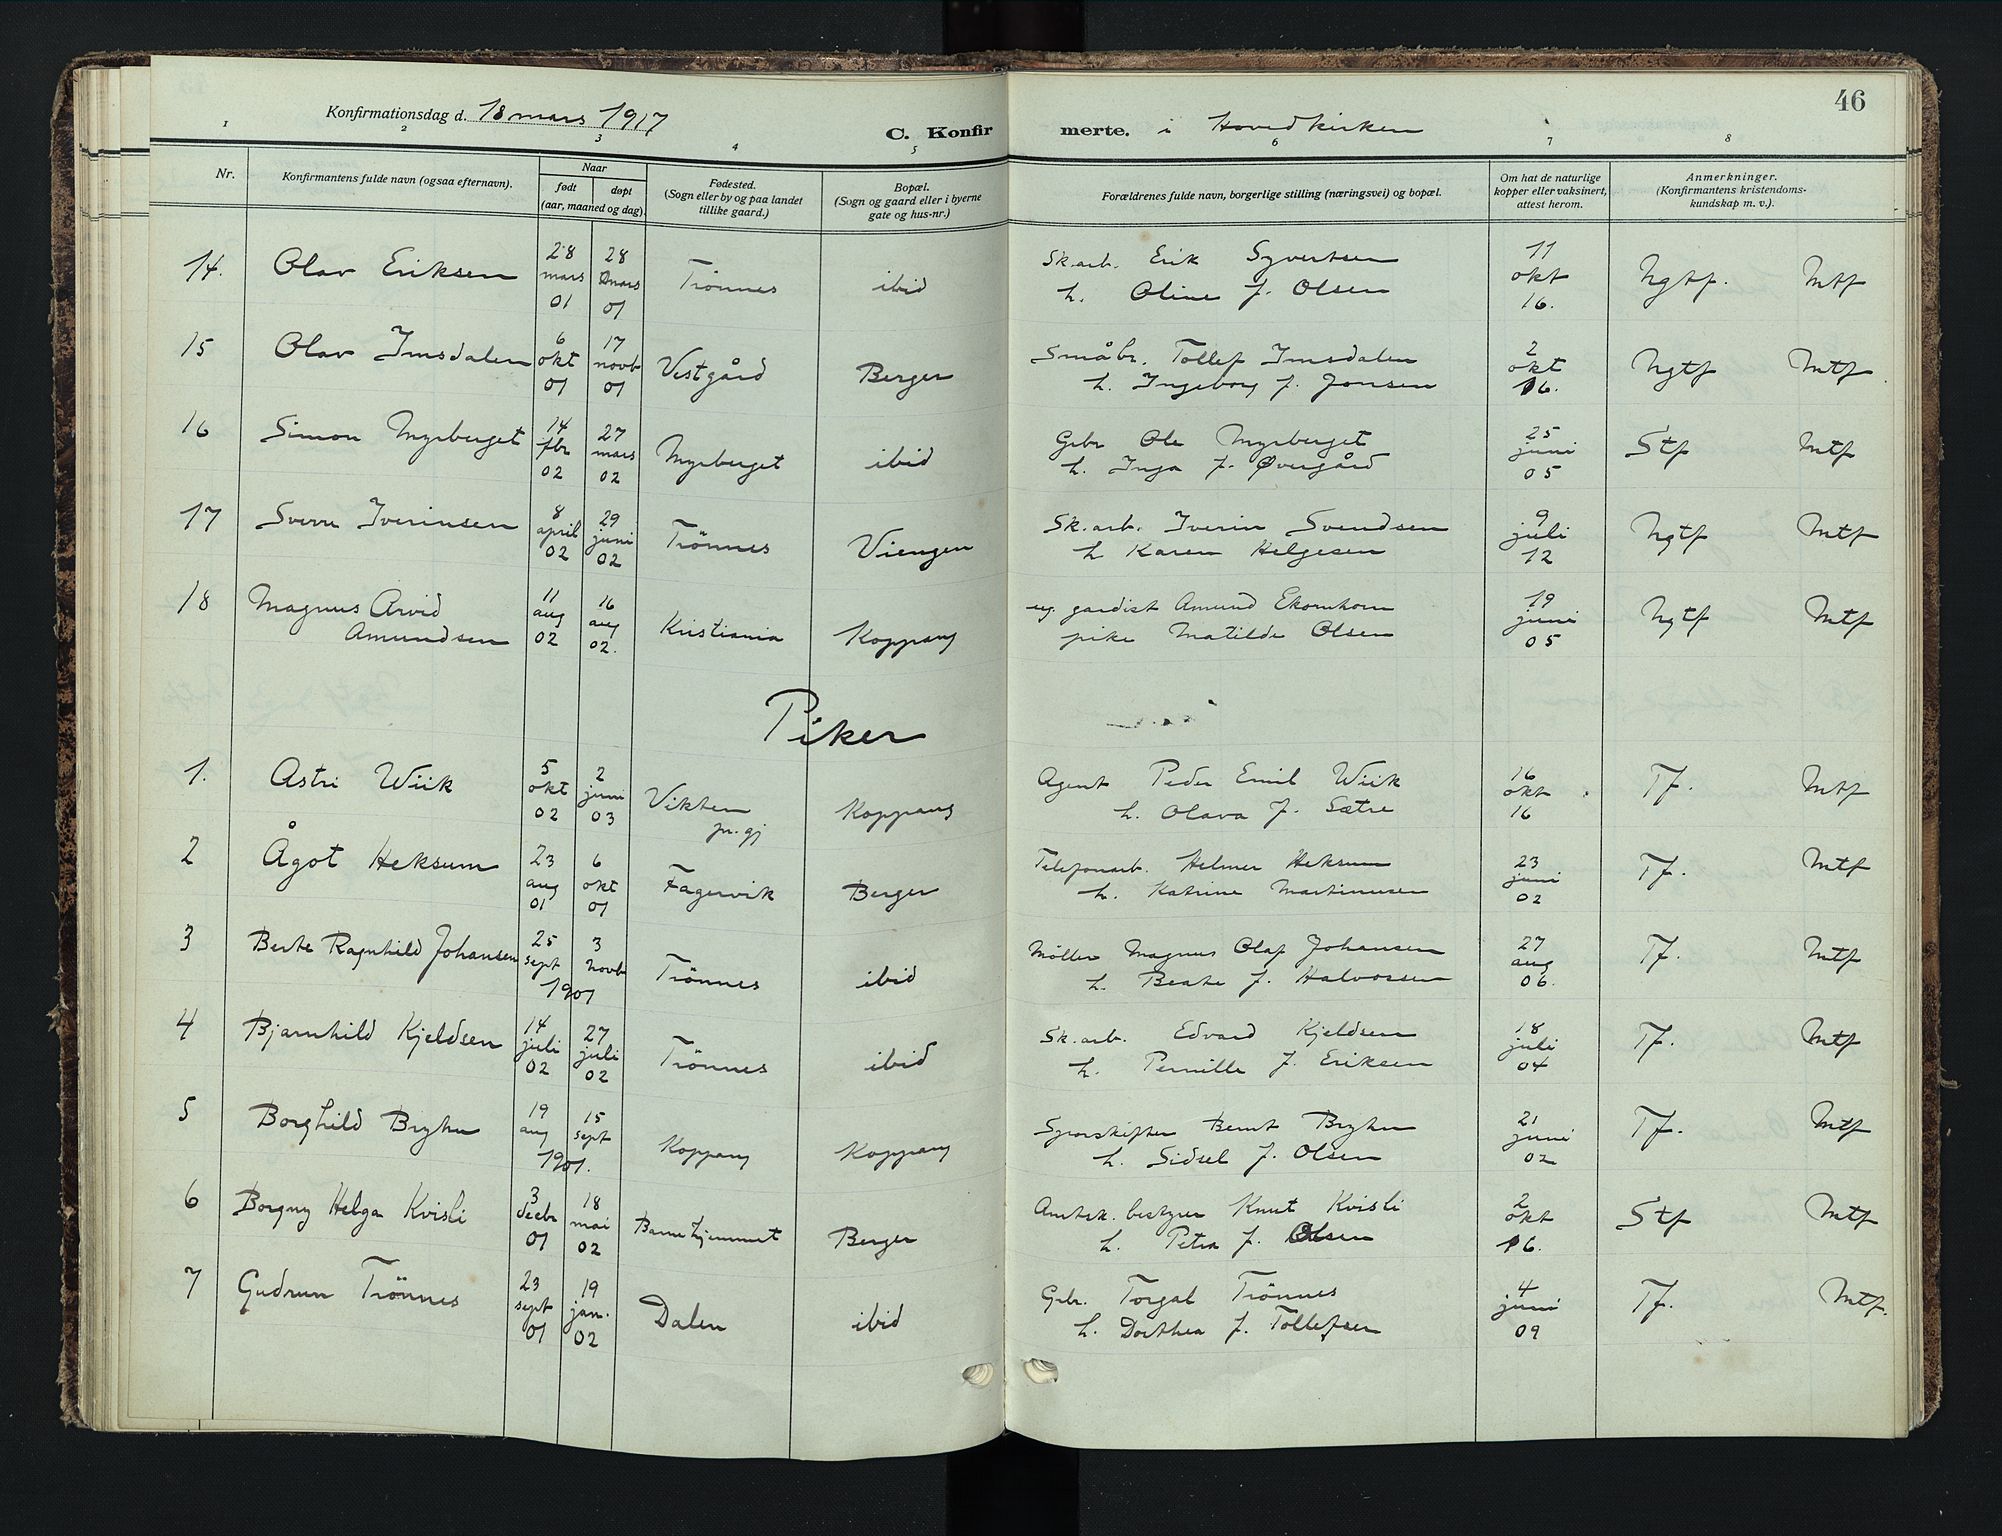 46
Konfirmationsdag d. 18 mars 1917
C. Konfirmerte. i Hovedkirken
1 2 3 4 5 6 7 8
Nr.
Konfirmantens fulde navn (ogsaa efternavn).
Naar
født
døpt
(aar, maaned og dag).
Fødested.
(Sogn eller by og paa landet
tillike gaard.)
Bopæl.
(Sogn og gaard eller i byerne
gate og hus-nr.)
Forældrenes fulde navn, borgerlige stilling (næringsvei) og bopæl.
Om hat de naturlige
kopper eller vaksinert,
attest herom.
Anmerkninger.
(Konfirmantens kristendoms-
kundskap m. v.).
14. Olav Eriksen 28 mars 01 28 mars 01 Trönnes ibid Sk.arb. Erik Syvertsen
h. Oline f. Olsen 11 okt 16. Ngtf. Mtf
15 Olav Imsdalen 6 okt 01 17 novb 01 Vestgård Berger Småbr. Tollef Imsdalen
h. Ingeborg f. Jonsen 2 okt 16. Ngtf Mtf
16 Simon Myrberget 14 fbr 02 27 mars 02 Myrberget ibid Grbr Ole Myrberget
h. Inga f. Øvergård 25 juni 05 Stf Mtf
17 Sverre Iverinsen 8 april 02 29 juni 02 Trönnes Viengen Sk.arb. Iverin Svendsen
h Karen Helgesen 9 juli 12 Ngtf Mtf
18 Magnus Arvid
Amundsen 11 aug 02 16 aug 02. Kristiania Koppang ug. gardist Amund Ekornhorn
pike Matilde Olsen 19 juni 05 Ngtf Mtf
Piker
1. Astri Wiik 5 okt 02 2 juni 03 Vikten pr. gj Koppang Agent Peder Emil Wiik
h. Olava f. Sætre 16 okt 16 Tf. Mtf
2 Ågot Heksum 23 aug 01 6 okt 01 Fagervik Berger Telefonarb. Helmer Heksum
h. Katrine Martinusen 23 juni 02 Tf. Mtf
3 Berte Ragnhild Johansen 25 sept 3 novb 1901 Trönnes ibid Möller Magnus Olaf Johansen
h. Beate f. Halvorsen 27 aug 06. Tf. Mtf
4 Bjarnhild Kjeldsen 14 juli 02 27 juli 02 Trönnes ibid Sk.arb. Edvard Kjeldsen
h. Pernille f. Eriksen 18 juli 04 Tf. Mtf
5 Borghild Bryhn 19 aug 15 sept 1901. Koppang Koppang Sporskifter Bernt Bryhn
h. Sidsel f. Olsen 21 juni 02 Tf. Mtf
6 Borgny Helga Kvisli 3 decbr 01 18 mai 02 Barnehjemmet Berger Amtsk. bestyrer Knut Kvisli
h. Petra f. Olsen 2 okt 16. Stf Mtf
7 Gudrun Trönnes 23 sept 01 19 jan. 02 Dalen ibid Grbr. Torgal Trönnes
h. Dorthea f. Tollefsen 4 juni 09 Tf. Mtf.